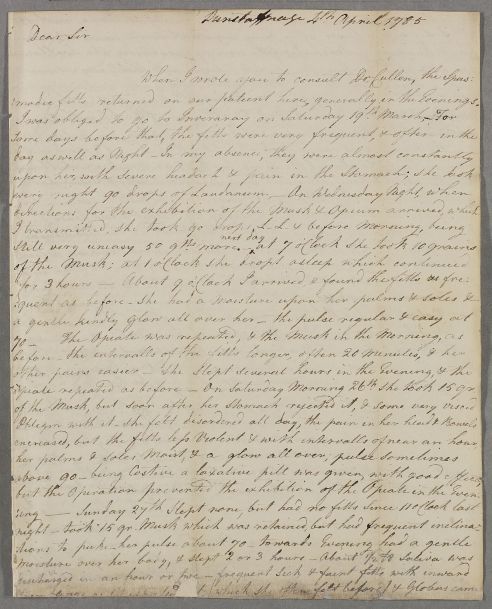 Dunstaffnage 4th April 1785
Dear Sir
When I wrote you to consult Dr Cullen, the Spas:
:modic fitts returned on our patient here, generally in the Evenings.
I was obliged to go to Inveraray on Saturday 19th March, For
some days before that, the fitts were very frequent, & often in the
day as well as Night – In my absence, they were almost constantly
upon her, with severe headach & pain in the Stomach; she took
were night 90 drops of Laudanum, – On Wednesday Night, when
directions for the exhibition of the Musk & Opium arrived, which
I transmitted, she took 90 drops L. L. & before Morning, being
still very uneasy 50 gtts more, next day at 7 oClock she took 10 grains
of the Musk; at 1 oClock she dropt asleep which continued
for 3 hours – About 9 oClock I arrived, & found the fitts as fre:
:quent as before. She had a moisture upon her palms & soles &
a gentle kindly glow all over her – the pulse regular & easy at
70 – The Opiate was repeated, & the Musk in the Morning, as
before – the intervalls of the fitts longer, often 20 Minutes, & her
other pains easier – She slept several hours in the Evening, & the
Opiate repeated as before – On Saturday Morning 26th she took 15 gr.
of the Musk, but soon after her Stomach rejected it, & some very viscid
Phlegm with it – she felt disordered all day, the pain in her head & Bowels
encreased, but the fitts less Violent & with intervalls of near an hour
her palms & soles Moist, & a glow all over, pulse sometimes
above 90 – being Costive a laxative pill was given, with good effect,
but the Operation prevented the exhibition of the Opiate in the Even:
:ing — Sunday 27th Slept none, but had no fitts since 11 oClock last
night – took 15 gr. Musk which was retained, but had frequent inclina:
:tions to puke – her pulse about 70 – towards Evening had a gentle
moisture over her body, & slept 2 or 3 hours – About Saliva was
discharged in an hour or two – frequent Sick & faint fitts with inward
which she felt before & Globus came